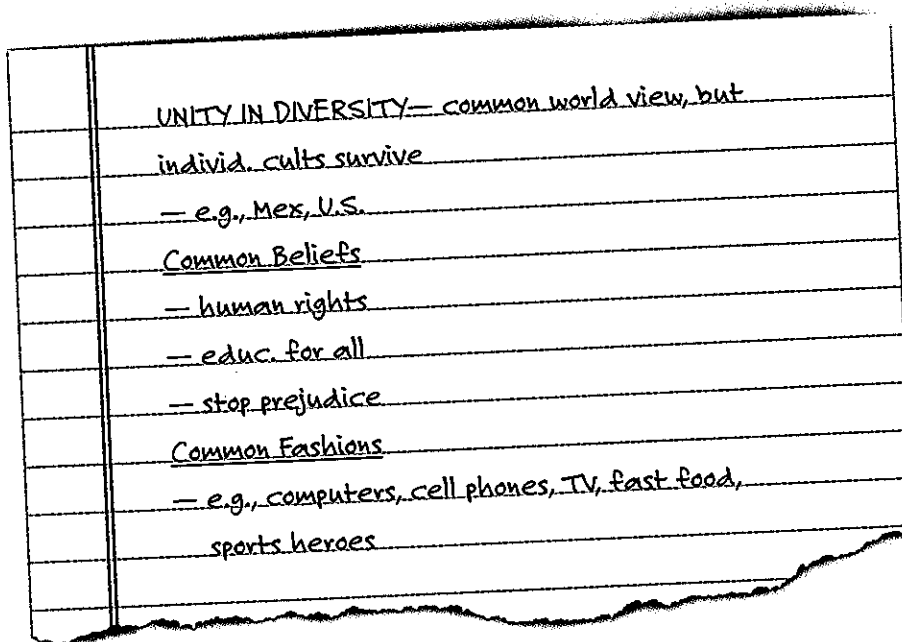 UNITY IN DIVERSITY— common world view, but
individ. cults survive
— e.g., Mex, U.S.
Common Beliefs
— human rights
— educ. for all
— stop prejudice
Common Fashions
— e.g., computers, cell phones, TV, fast food,
sports heroes